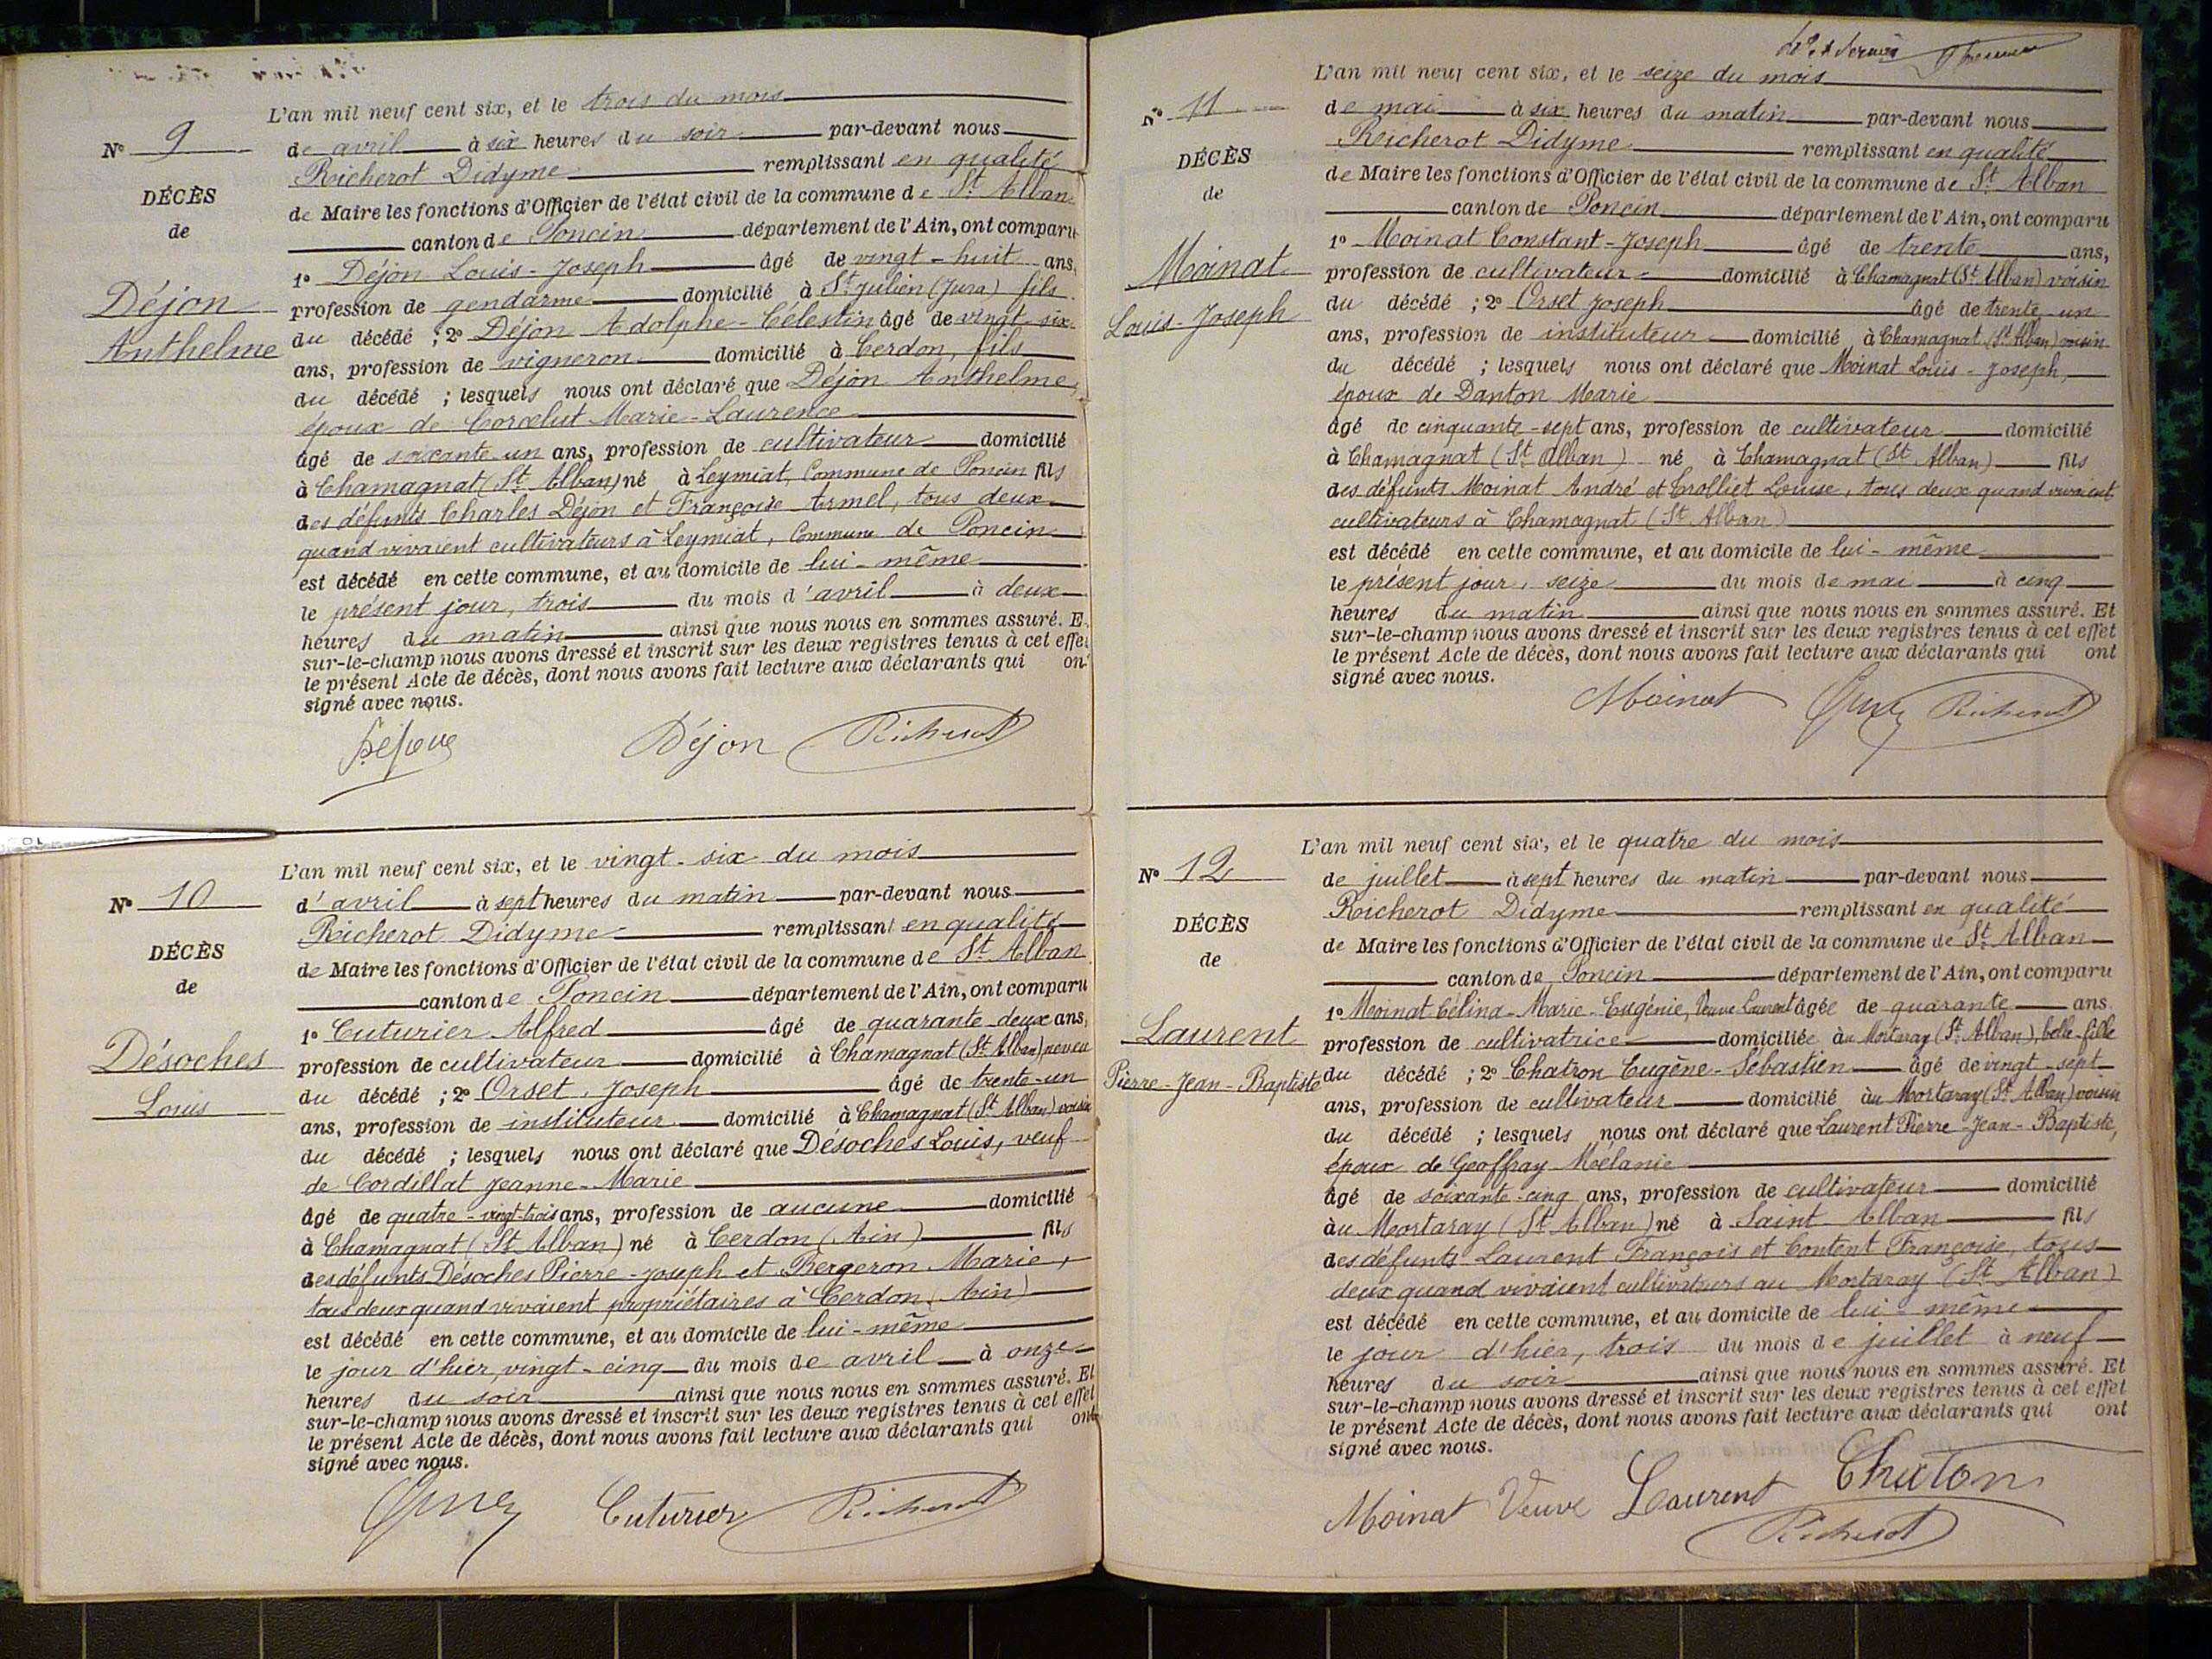 L'an mil neuf cent six, et le trois du mois
N° 9
de avril à six heures du soir par-devant nous
Richerot Didyme remplissant en qualité
DÉCÈS
de Maire les fonctions d'Officier de l'état civil de la commune de St Alban
de
canton de Poncin département de l'Ain, ont comparu
1° Déjon Louis-Joseph âgé de vingt-huit ans,
Déjon
profession de gendarme domicilié à St Julien (Jura) fils
Anthelme
du décédé ; 2° Déjon Adolphe-Célestin âgé de vingt-six
ans, profession de vigneron domicilié à Cerdon, fils
du décédé ; lesquels nous ont déclaré que Déjon Anthelme,
époux de Corcelut Marie-Laurence
âgé de soixante-un ans, profession de cultivateur domicilié
à Chamagnat (St Alban) né à Leymiat, Commune de Poncin fils
des défunts Charles Déjon et Françoise Armel, tous deux
quand vivaient cultivateurs à Leymiat, Commune de Poncin
est décédé en cette commune, et au domicile de lui-même
le présent jour, trois du mois d'avril à deux
heures du matin ainsi que nous nous en sommes assuré. E
sur-le-champ nous avons dressé et inscrit sur les deux registres tenus à cet effe
le présent Acte de décès, dont nous avons fait lecture aux déclarants qui on
signé avec nous.
Déjon Richerot
L'an mil neuf cent six, et le vingt-six du mois
N° 10
d'avril à sept heures du matin par-devant nous
Richerot Didyme remplissant en qualité
DÉCÈS
de Maire les fonctions d'Officier de l'état civil de la commune de St Alban
de
canton de Poncin département de l'Ain, ont comparu
1° Cuturier Alfred âgé de quarante-deux ans,
Désoches
profession de cultivateur domicilié à Chamagnat (St Alban) neveu
Louis
du décédé ; 2° Orset, Joseph âgé de trente-un
ans, profession de instituteur domicilié à Chamagnat (St Alban) voisin
du décédé ; lesquels nous ont déclaré que Désoches Louis, veuf
de Cordillat Jeanne-Marie
âgé de quatre-vingt-trois ans, profession de aucune domicilié
à Chamagnat (St Alban) né à Cerdon (Ain) fils
des défunts Désoches Pierre-Joseph et Bergeron Marie,
tous deux quand vivaient propriétaires à Cerdon (Ain)
est décédé en cette commune, et au domicile de lui-même
le jour d'hier, vingt-cinq du mois de avril à onze
heures du soir ainsi que nous nous en sommes assuré. Et
sur-le-champ nous avons dressé et inscrit sur les deux registres tenus à cet effet
le présent Acte de décès, dont nous avons fait lecture aux déclarants qui ont
signé avec nous.
Orset Cuturier Richerot
L'an mil neuf cent six, et le seize du mois
N° 11
de mai à six heures du matin par-devant nous
Richerot Didyme remplissant en qualité
DÉCÈS
de Maire les fonctions d'Officier de l'état civil de la commune de St Alban
de
canton de Poncin département de l'Ain, ont comparu
1° Moinat Constant-Joseph âgé de trente ans,
Moinat
profession de cultivateur domicilié à Chamagnat (St Alban) voisin
Louis-Joseph
du décédé ; 2° Orset Joseph âgé de trente-un
ans, profession de instituteur domicilié à Chamagnat (St Alban) voisin
du décédé ; lesquels nous ont déclaré que Moinat Louis-Joseph,
époux de Danton Marie
âgé de cinquante-sept ans, profession de cultivateur domicilié
à Chamagnat (St Alban) né à Chamagnat (St Alban) fils
des défunts Moinat André et Trolliet Louise, tous deux quand vivaient
cultivateurs à Chamagnat (St Alban)
est décédé en cette commune, et au domicile de lui-même
le présent jour, seize du mois de mai à cinq
heures du matin ainsi que nous nous en sommes assuré. Et
sur-le-champ nous avons dressé et inscrit sur les deux registres tenus à cet effet
le présent Acte de décès, dont nous avons fait lecture aux déclarants qui ont
signé avec nous.
Moinat Orset Richerot
L'an mil neuf cent six, et le quatre du mois
N° 12
de juillet à sept heures du matin par-devant nous
Richerot Didyme remplissant en qualité
DÉCÈS
de Maire les fonctions d'Officier de l'état civil de la commune de St Alban
de
canton de Poncin département de l'Ain, ont comparu
1° Moinat Célina-Marie-Eugénie, Veuve Laurent âgée de quarante ans,
Laurent
profession de cultivatrice domiciliée au Mortaray (St Alban), belle-fille
Pierre-Jean-Baptiste
du décédé ; 2° Chatron Eugène-Sébastien âgé de vingt-sept
ans, profession de cultivateur domicilié au Mortaray (St Alban) voisin
du décédé ; lesquels nous ont déclaré que Laurent Pierre-Jean-Baptiste,
époux de Geoffray Mélanie
âgé de soixante-cinq ans, profession de cultivateur domicilié
au Mortaray (St Alban) né à Saint Alban fils
des défunts Laurent François et Content Françoise, tous
deux quand vivaient cultivateurs au Mortaray (St Alban)
est décédé en cette commune, et au domicile de lui-même
le jour d'hier, trois du mois de juillet à neuf
heures du soir ainsi que nous nous en sommes assuré. Et
sur-le-champ nous avons dressé et inscrit sur les deux registres tenus à cet effet
le présent Acte de décès, dont nous avons fait lecture aux déclarants qui ont
signé avec nous.
Moinat Veuve Laurent Chatron
Richerot